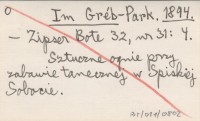 o Im Gréb-Park. 1894.
— Zipser Bote 32, nr 31: 4.
Sztuczne ognie przy
zabawie tanecznej w Spiskiej
Sobocie.